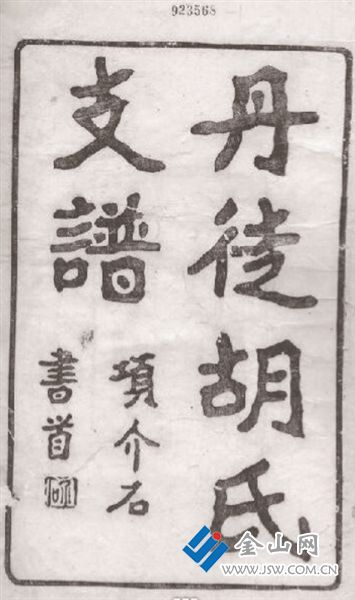 923568
丹徒胡氏
支譜
項介石
書首
金山网
WWW.JSW.COM.CN